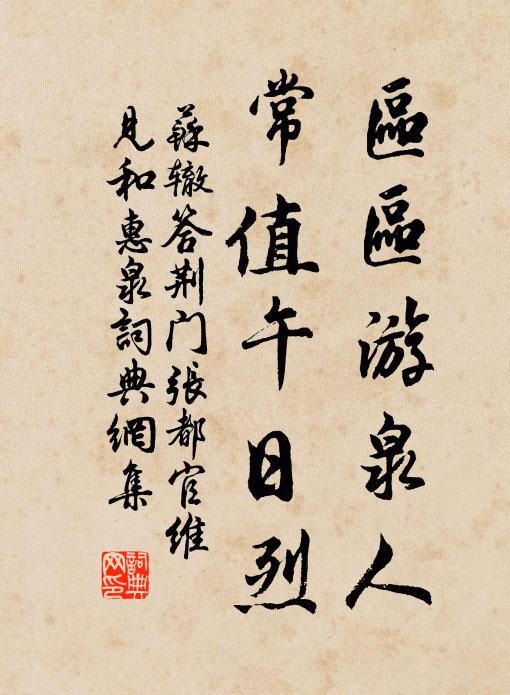 區區游泉人
常值午日烈
蘇辙答荆门張都官維
見和惠泉詞典網集
詞典
网印